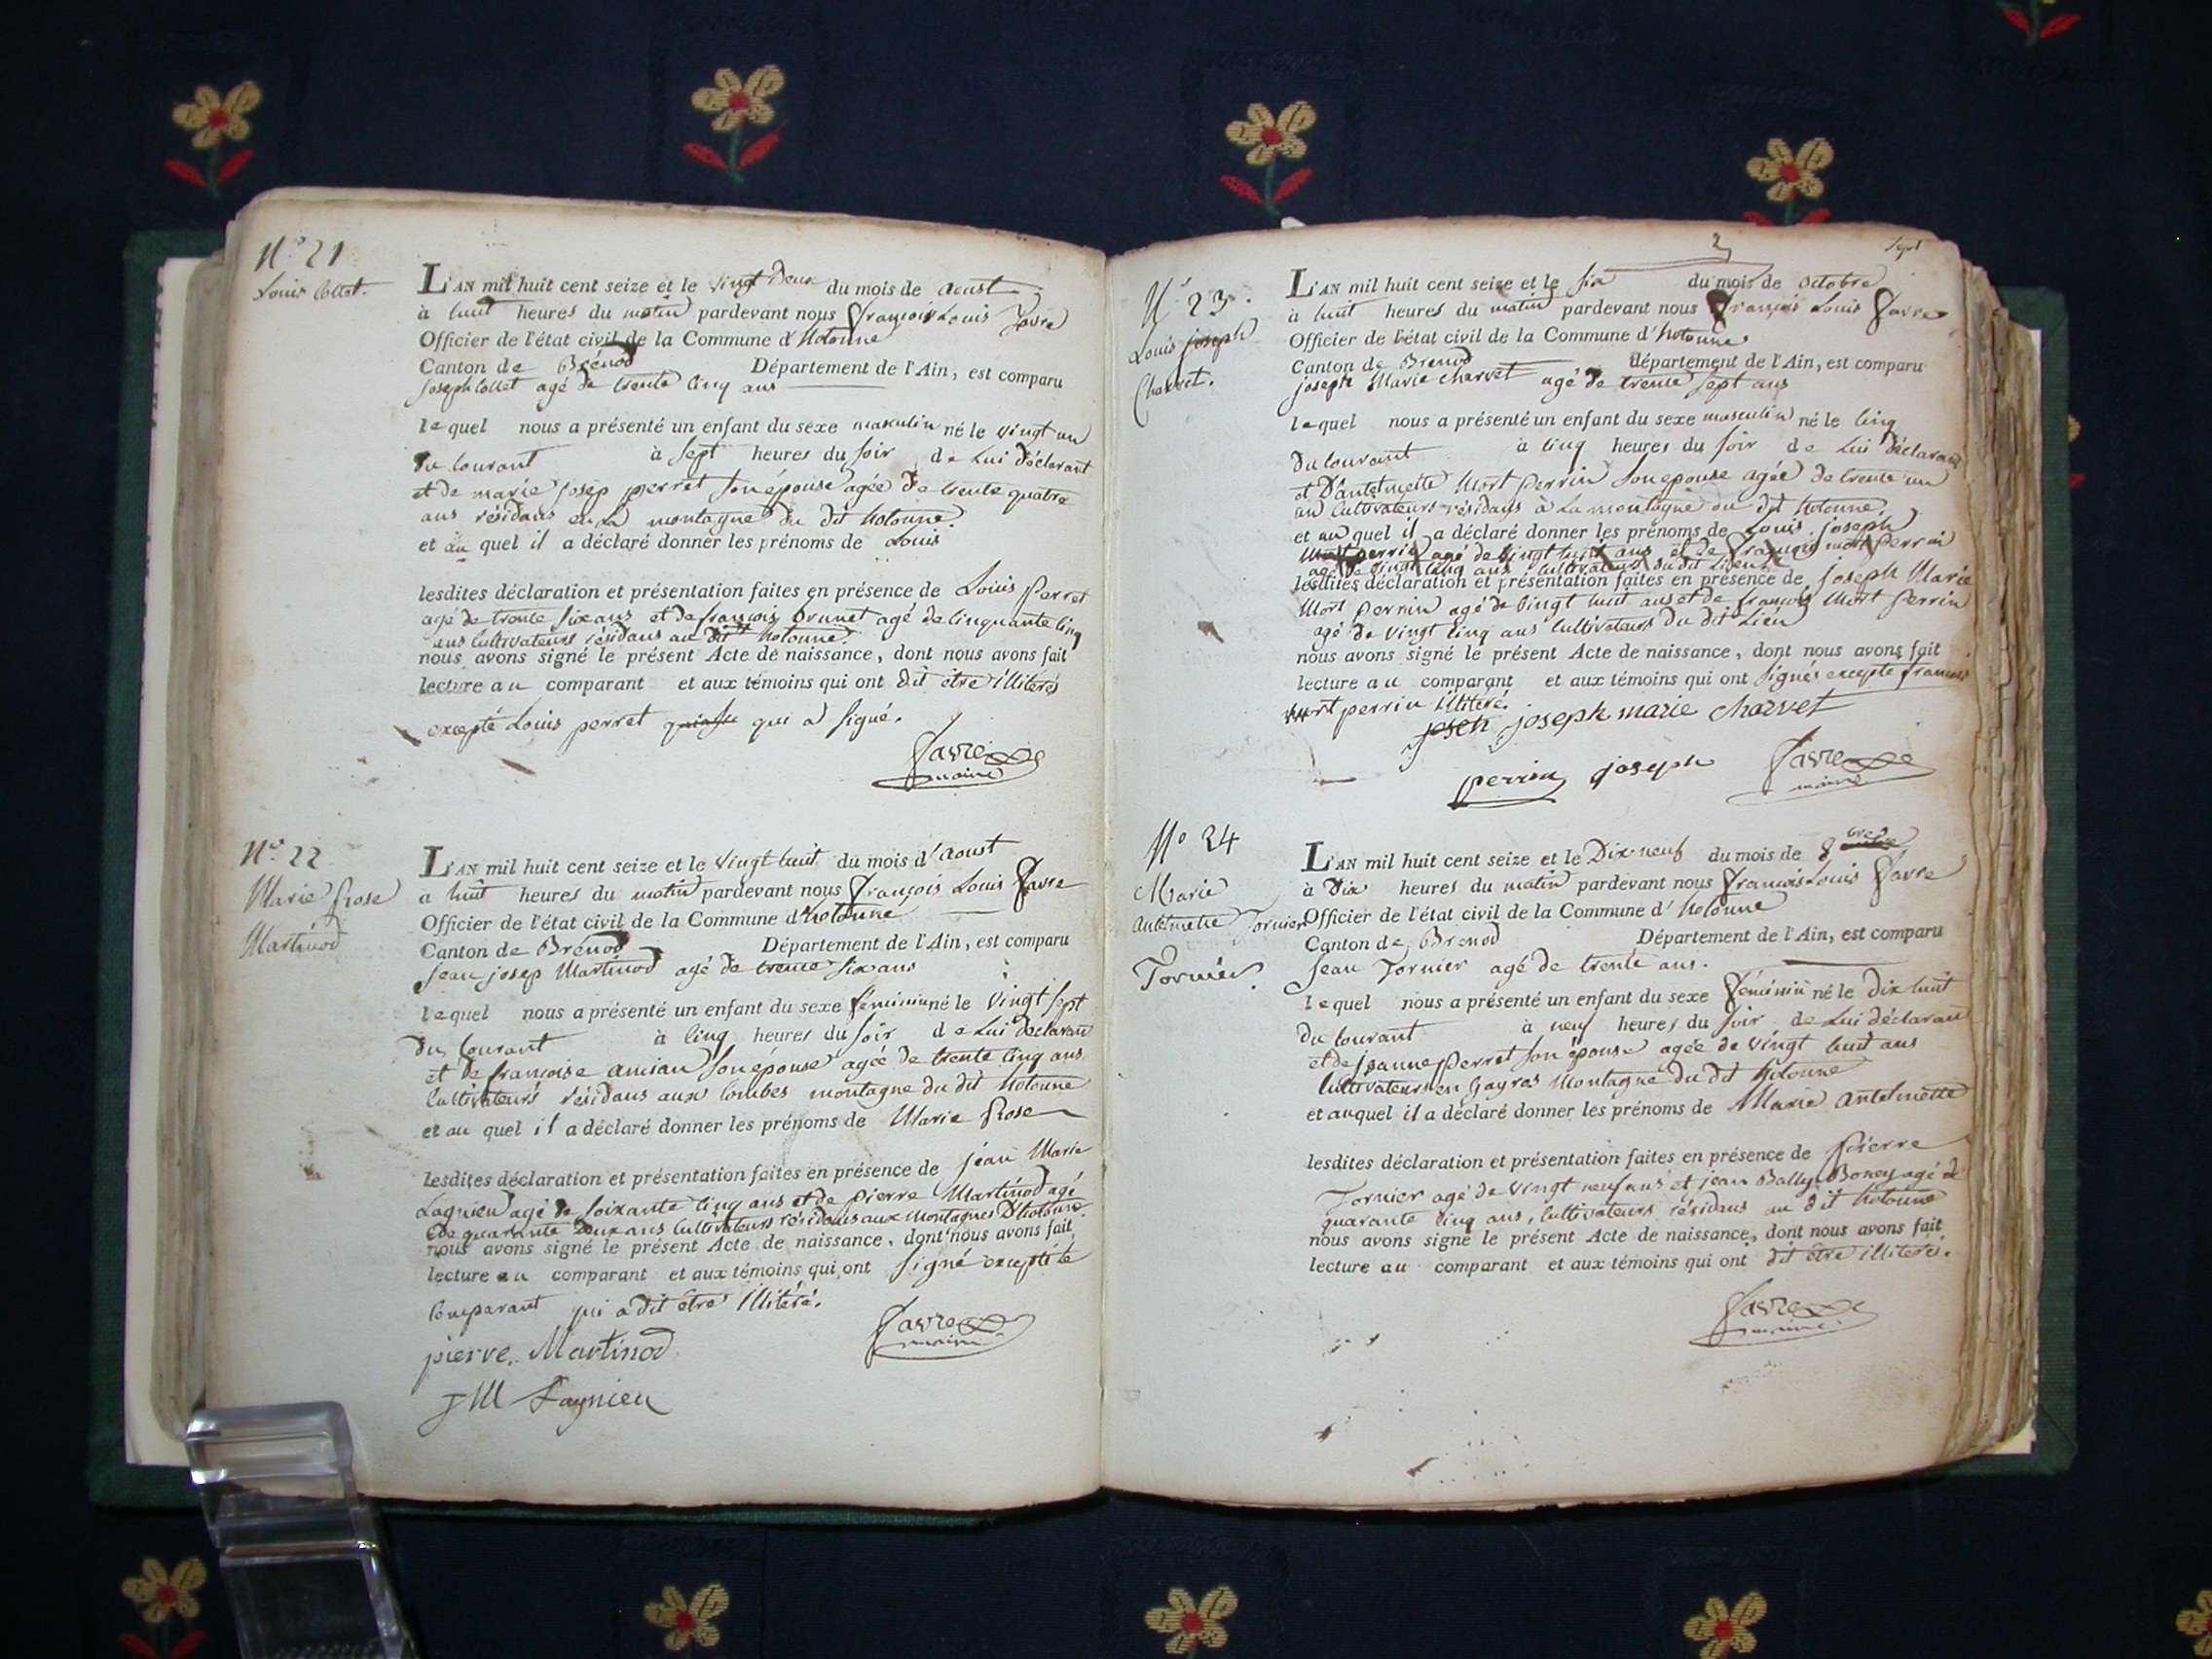 N.° 21
Louis Collet.
L'AN mil huit cent seize et le vingt Deux du mois de aoust
à huit heures du matin pardevant nous françois Louis favre
Officier de l'état civil de la Commune d'hotonne
Canton de Brénod Département de l'Ain, est comparu
joseph Collet agé de trente Cinq ans
lequel nous a présenté un enfant du sexe masculin né le vingt un
du Courant à sept heures du soir de Lui déclarant
et de marie josep perret son épouse agée de trente quatre
ans résidans en La montagne du dit hotonne.
et au quel il a déclaré donner les prénoms de Louis
lesdites déclaration et présentation faites en présence de Louis Perret
agé de trente six ans et de françois Brunet agé de Cinquante Cinq
ans Cultivateurs résidans au dit hotonne.
nous avons signé le présent Acte de naissance, dont nous avons fait
lecture au comparant et aux témoins qui ont dit être illiterés
excepté Louis perret qui a signé.
favre
maire
N.° 22
Marie Rose
Martinod
L'AN mil huit cent seize et le vingt huit du mois d'aoust
a huit heures du matin pardevant nous françois Louis favre
Officier de l'état civil de la Commune d'hotonne
Canton de Brénod Département de l'Ain, est comparu
jean josep Martinod agé de trente six ans
lequel nous a présenté un enfant du sexe féminin né le vingt sept
du Courant à Cinq heures du soir de Lui déclarant
et de françoise amian son épouse agée de trente Cinq ans
Cultivateurs résidans aux Combes montagne du dit hotonne
et au quel il a déclaré donner les prénoms de Marie Rose
lesdites déclaration et présentation faites en présence de jean Marie
Lagnieu agé de soixante Cinq ans et de pierre Martinod agé
de quarante Deux ans Cultivateurs résidans aux Montagnes D'hotonne.
nous avons signé le présent Acte de naissance, dont nous avons fait
lecture au comparant et aux témoins qui ont signé excepté le
Comparant qui a dit être illiteré.
favre
maire
pierre Martinod
J M Lagnieu
Sept
N.° 23.
Louis joseph
Charvet.
L'AN mil huit cent seize et le six du mois de octobre
à huit heures du matin pardevant nous françois Louis favre
Officier de l'état civil de la Commune d'hotonne
Canton de Brenod département de l'Ain, est comparu
joseph Marie charvet agé de trente sept ans
lequel nous a présenté un enfant du sexe masculin né le Cinq
du Courant à Cinq heures du soir de Lui déclarant
et D'antelmette Mort Perrin son epouse agée de trente un
an Cultivateurs résidans à La montagne du dit hotonne.
et au quel il a déclaré donner les prénoms de Louis joseph
Mort perrin agé de vingt huit ans et de françois mort perrin
agé de vingt Cinq ans Cultivateurs du dit Lieu
lesdites déclaration et présentation faites en présence de joseph Marie
Mort Perrin agé de vingt huit ans et de françois Mort Perrin
agé de vingt Cinq ans Cultivateurs du dit Lieu
nous avons signé le présent Acte de naissance, dont nous avons fait
lecture au comparant et aux témoins qui ont signés excepté francois
mort perrin illiteré.
joseh joseph marie charvet
perrin joseph
favre
maire
N° 24
Marie
antelmette Tornier
Tornier.
L'AN mil huit cent seize et le Dix-neuf du mois de 8bre
à Dix heures du matin pardevant nous francois Louis favre
Officier de l'état civil de la Commune d'hotonne
Canton de Brenod Département de l'Ain, est comparu
jean Tornier agé de trente ans.
lequel nous a présenté un enfant du sexe féminin né le dix huit
du Courant à neuf heures du soir de Lui déclarant
et de jeanne perret son épouse agée de vingt huit ans
Cultivateurs en Montagne du dit hotonne
et auquel il a déclaré donner les prénoms de Marie antelmette
lesdites déclaration et présentation faites en présence de pierre
Tornier agé de vingt neuf ans et jean Bally agé de
quarante Cinq ans, Cultivateurs résidans au dit hotonne
nous avons signé le présent Acte de naissance, dont nous avons fait
lecture au comparant et aux témoins qui ont dit être illiterés.
favre
maire